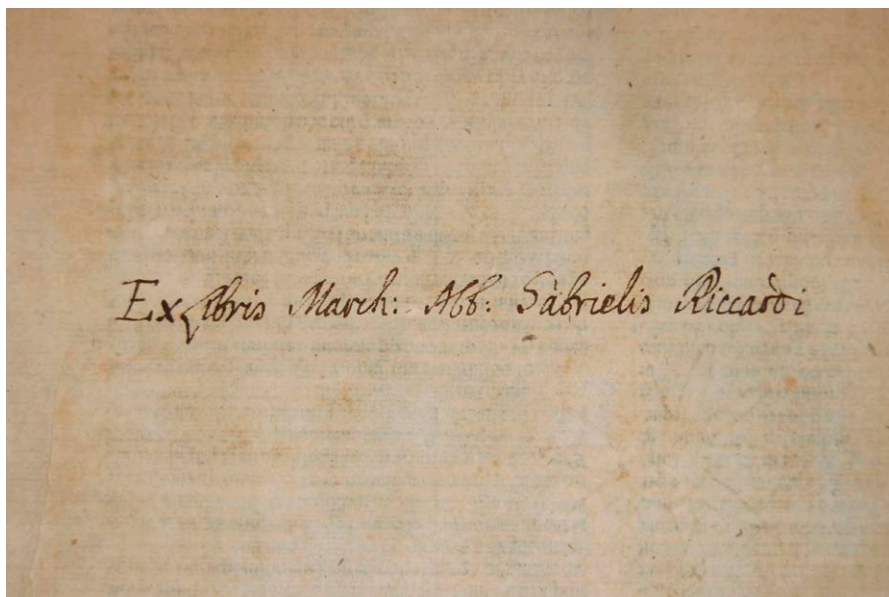 Ex Libris March: Abb: Gabrielis Riccardi